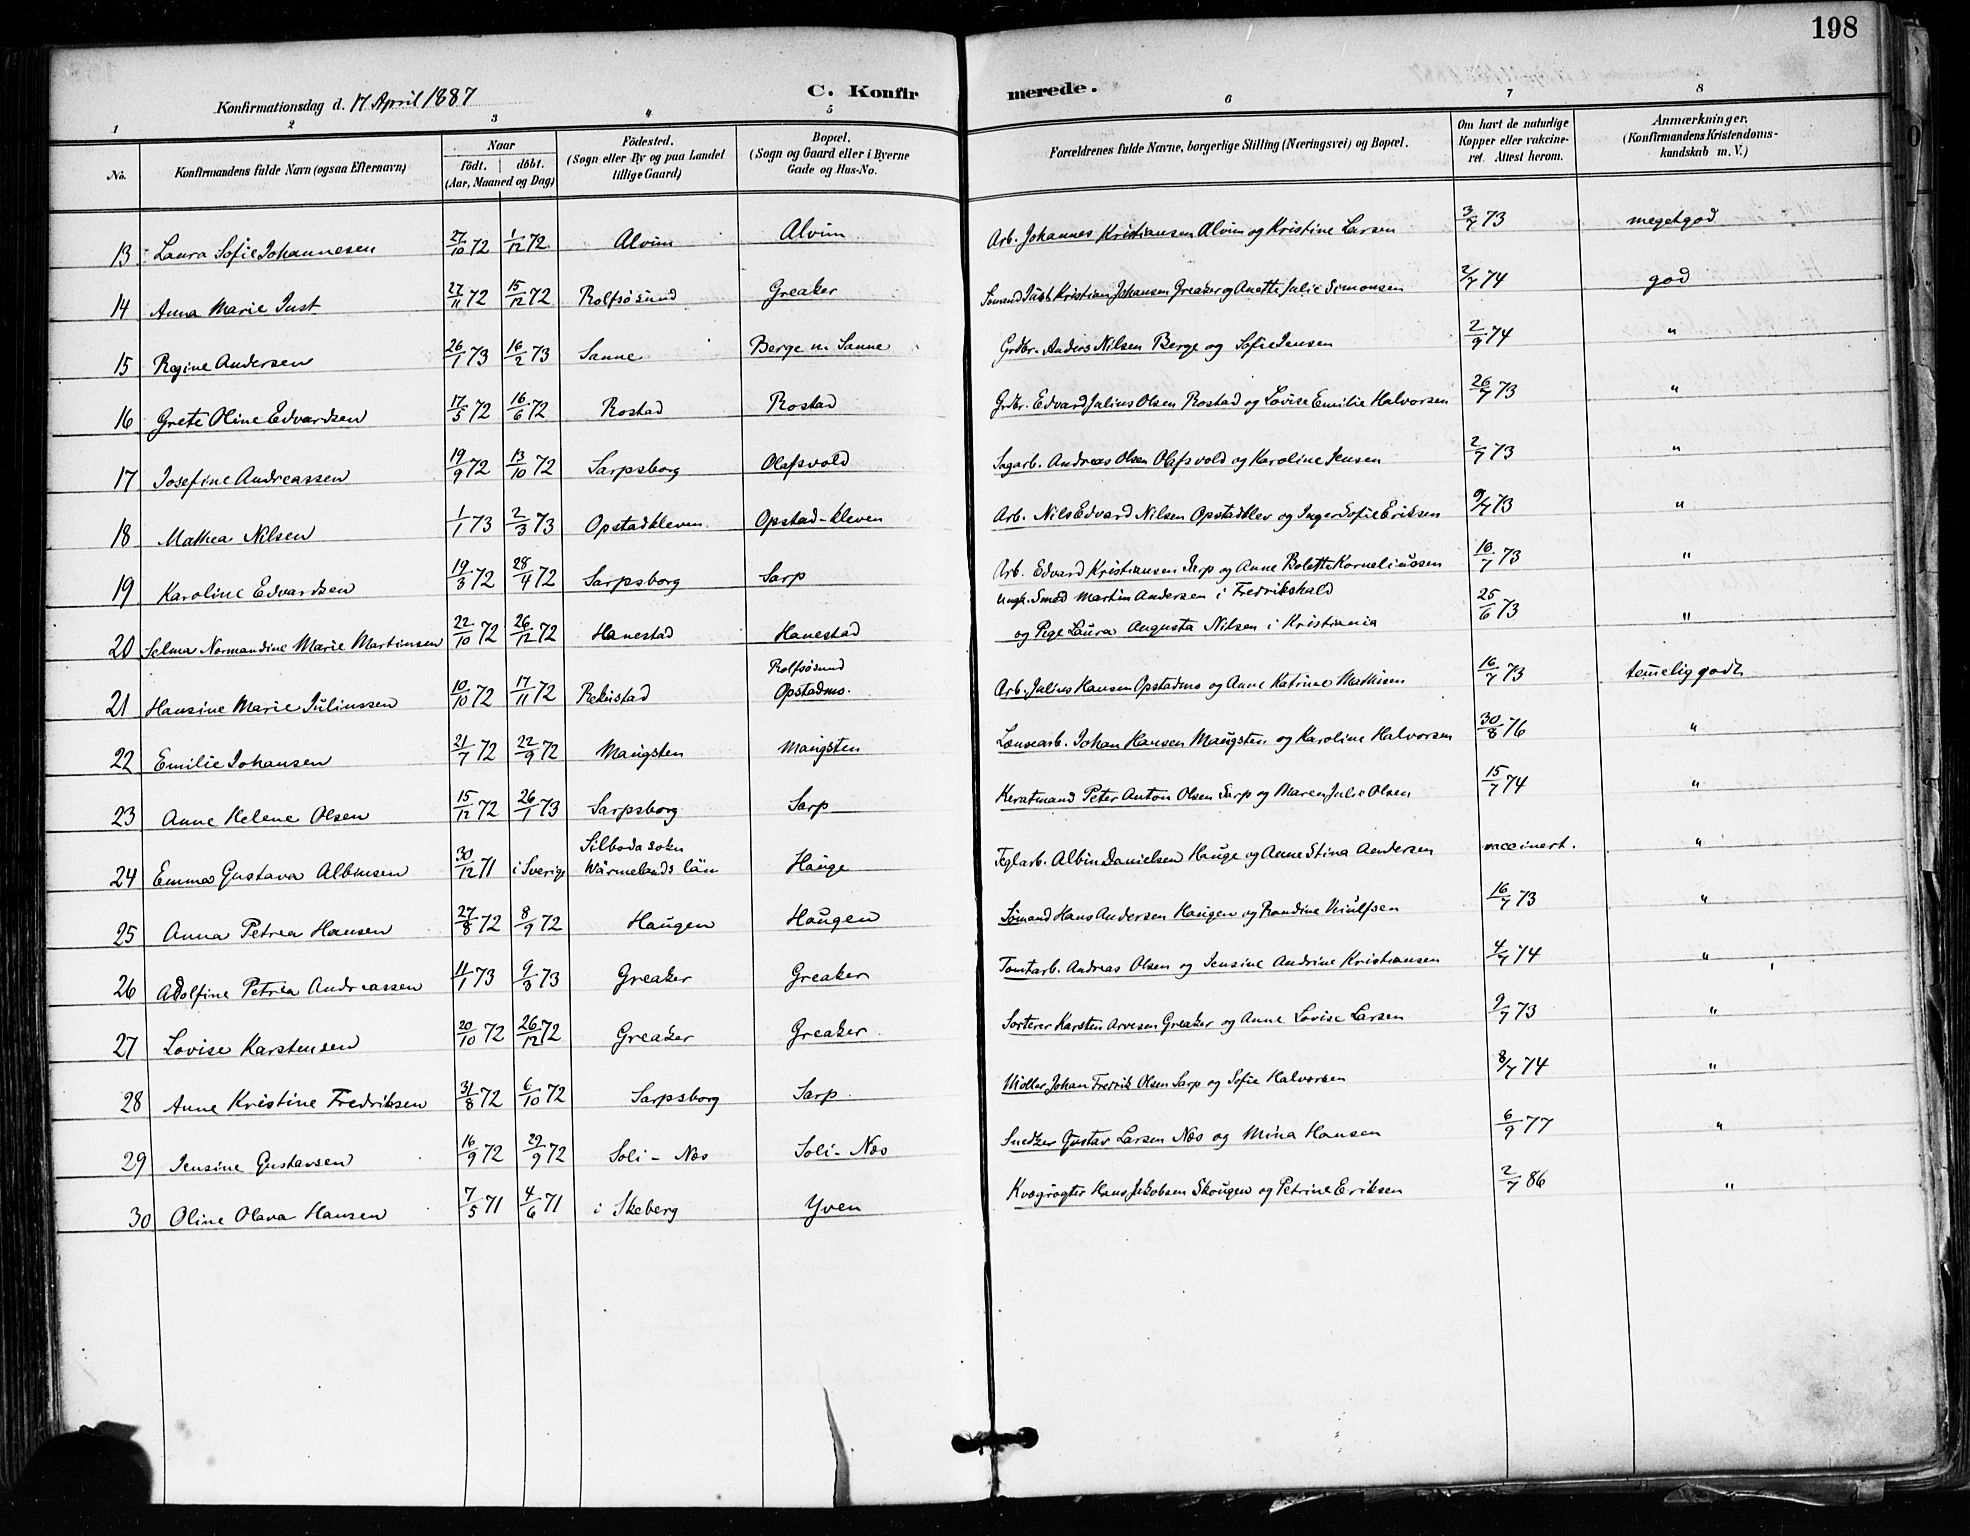 198
Konfirmationsdag d. 17 April 1887
C. Konfirmerede.
1 2 3 4 5 6 7 8
No. Konfirmandens fulde Navn (ogsaa Efternavn) Naar født. døbt. (Aar, Maaned og Dag) Fødested. (Sogn eller By og paa Landet tillige Gaard) Bopæl. (Sogn og Gaard eller i Byerne Gade og Hus-No. Forældrenes fulde Navne, borgerlige Stilling (Næringsvei) og Bopæl. Om havt de naturlige Kopper eller vakcineret. Attest herom. Anmærkninger. (Konfirmandens Kristendomskundskab m. V.)
13 Laura Sofie Johannesen 27/10 72 1/12 72 Alvim Alvim Arb. Johannes Kristiansen Alvim og Kristine Larsen 3/7 73 megetgod
14 Anna Marie Just 27/11 72 15/12 72 Rolfsøsund Greaker Sømand Just Kristian Johansen Greaker og Anette Julie Simonsen 2/7 74 god
15 Regine Andersen 26/1 73 16/2 73 Sanne Berge u. Sanne Grdbr. Anders Nilsen Berge og Sofie Jensen 2/9 74 "
16 Grete Oline Edvardsen 17/5 72 16/6 72 Rostad Rostad Grdbr. Edvard Julius Olsen Rostad og Lovise Emilie Halvorsen 26/7 73 "
17 Josefine Andreassen 19/9 72 13/10 72 Sarpsborg Olafsvold Sagarb. Andreas Olsen Olafsvold og Karoline Jensen 2/7 73 "
18 Mathea Nilsen 1/1 73 2/3 73 Opstadkleven Opstad-kleven Arb. Nils Edvard Nilsen Opstadklev og Inger Sofie Eriksen 9/7 73 "
19 Karoline Edvardsen 19/3 72 28/4 72 Sarpsborg Sarp Arb. Edvard Kristiansen Sarp og Anne Bolette Korneliussen 10/7 73 "
20 Selma Normandine Marie Martinsen 22/10 72 26/12 72 Hanestad Hanestad Ungk. Smed Martin Andersen i Fredrikshald
og Pige Laura Augusta Nilsen i Kristiania 25/6 73 "
21 Hansine Marie Juliussen 10/10 72 17/11 72 Rekustad Rolfsøsund
Opstadmo. Arb. Julius Hansen Opstadmo og Anne Katrine Mathisen 16/7 73 temelig godt
22 Emilie Johansen 21/7 72 22/9 72 Maugsten Maugsten Lænsearb. Johan Hansen Maugsten og Karoline Halvorsen 30/8 76 "
23 Anne Helene Olsen 15/12 72 26/1 73 Sarpsborg Sarp Keratmand Peter Anton Olsen Sarp og Maren Julie Olsen 15/7 74 "
24 Emma Gustava Albinsen 30/12 71 i Sverige Silboda sokn
Wärmelands län Hauge Teglarb. Albin Danielsen Hauge og Anne Stina Andersen vaccinert. "
25 Anna Petrea Hansen 27/8 72 8/9 72 Haugen Haugen Sømand Hans Andersen Haugen og Randine 16/7 73 "
26 Adolfine Petrea Andreassen 11/1 73 9/3 73 Greaker Greaker Tomtarb. Andreas Olsen og Jensine Andrine Kristiansen 4/7 74 "
27 Lovise Karstensen 20/10 72 26/12 72 Greaker Greaker Sorterer Karsten Arvesen Greaker og Anne Lovise Larsen 9/7 73 "
28 Anne Kristine Fredriksen 31/8 72 6/10 72 Sarpsborg Sarp Møller Johan Fredrik Olsen Sarp og Sofie Halvorsen 8/7 74 "
29 Jensine Gustavsen 16/9 72 29/9 72 Soli - Næs Soli - Næs Snedker Gustav Larsen Næs og Mina Hansen 6/9 77 "
30 Oline Olava Hansen 7/5 71 4/6 71 i Skeberg Yven Kvægrøgter Hans Jakobsen Skougen og Petrine Eriksen 2/7 86 "